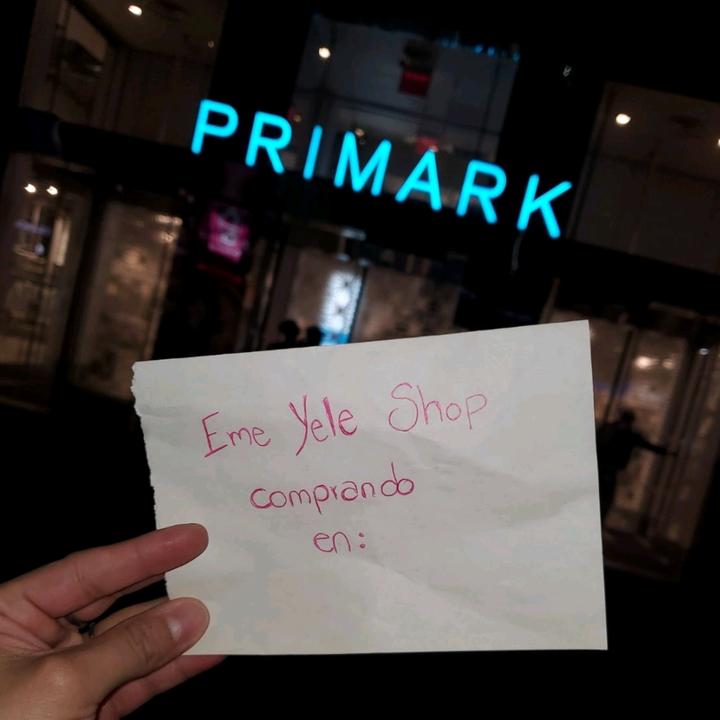 PRIMARK
Eme Yele Shop
comprando
en: